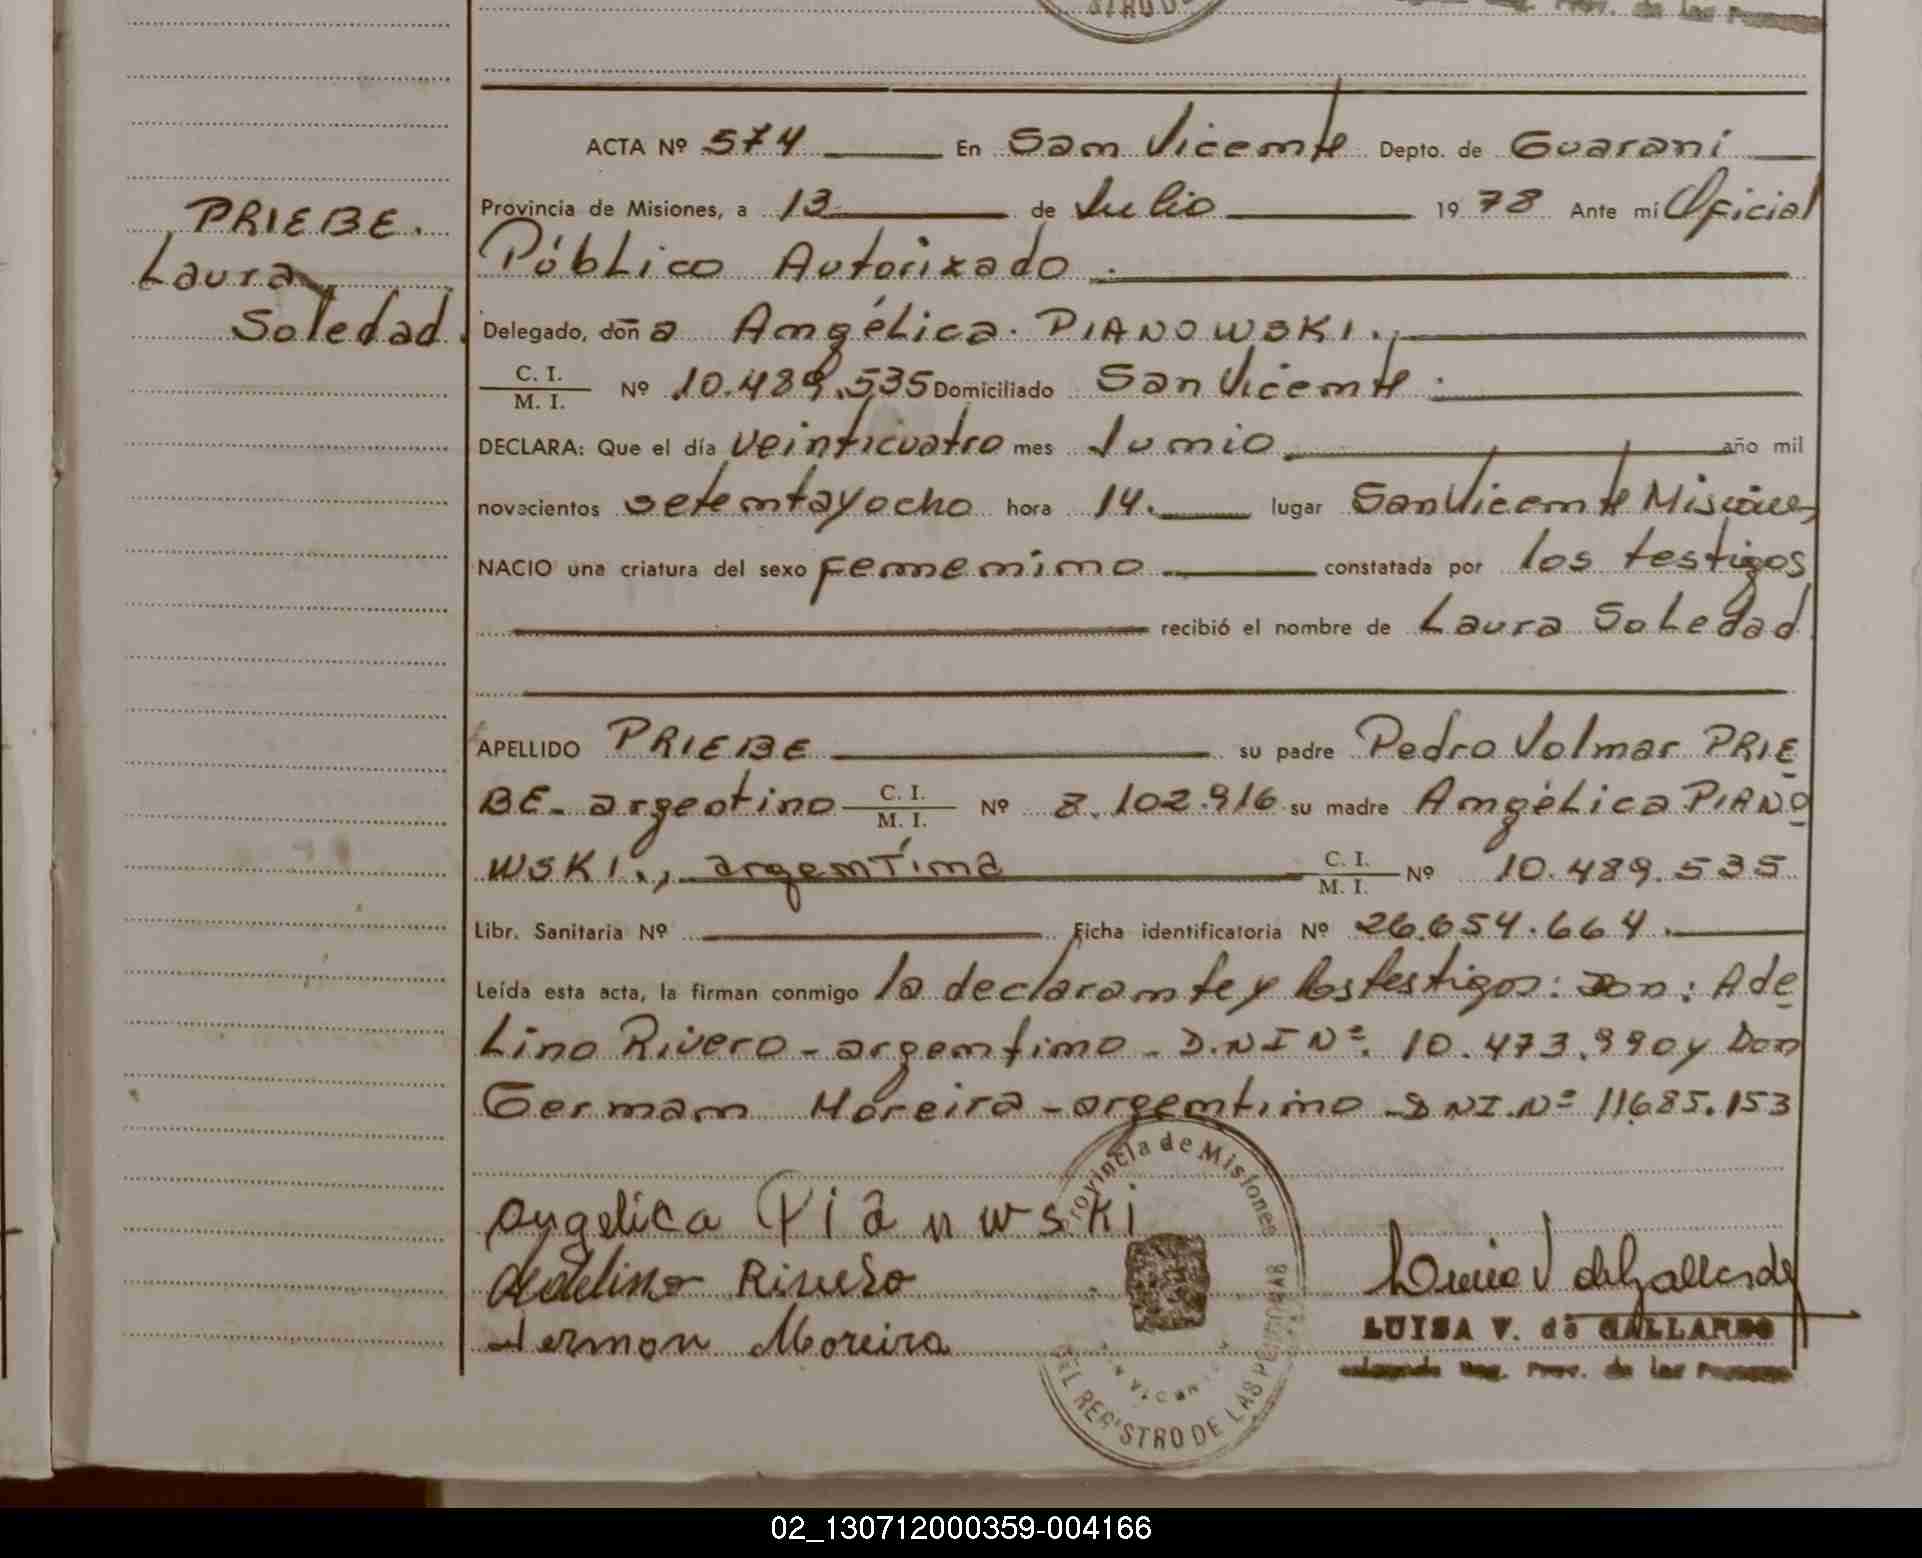 ACTA Nº 574 En San Vicente Depto. de Guaraní
Provincia de Misiones, a 13 de Julio 1978 Ante mi Oficial
PRIEBE.
Público Autorizado.
Laura
Soledad.
Delegado, doña Angélica PIANOWSKI.,
C. I.
M. I. Nº 10.489.535 Domiciliado San Vicente.
DECLARA: Que el día veinticuatro mes Junio año mil
novecientos setentayocho hora 14. lugar San Vicente Misiones
NACIO una criatura del sexo femenino constatada por los testigos
recibió el nombre de Laura Soledad
APELLIDO PRIEBE su padre Pedro Volmar PRIE
BE- argentino C. I. M. I. Nº 8.102.916 su madre Angélica PIANO
WSKI., argentina C. I. M. I. Nº 10.489.535
Libr. Sanitaria Nº Ficha identificatoria Nº 26.654.664.
Leída esta acta, la firman conmigo la declarante y los testigos: Don: Ade
Lino Rivero - argentino - D.N I Nº. 10.473.990 y Don
German Moreira - argentino - DNI. Nº 11685.153
Provincia de Misiones
Angelica Pianwski
Adelino Rivero
German Moreira
LUISA V. de GALLARDO
Reg. Prov. de las Personas
DEL REGISTRO DE LAS PERSONAS
02_130712000359-004166